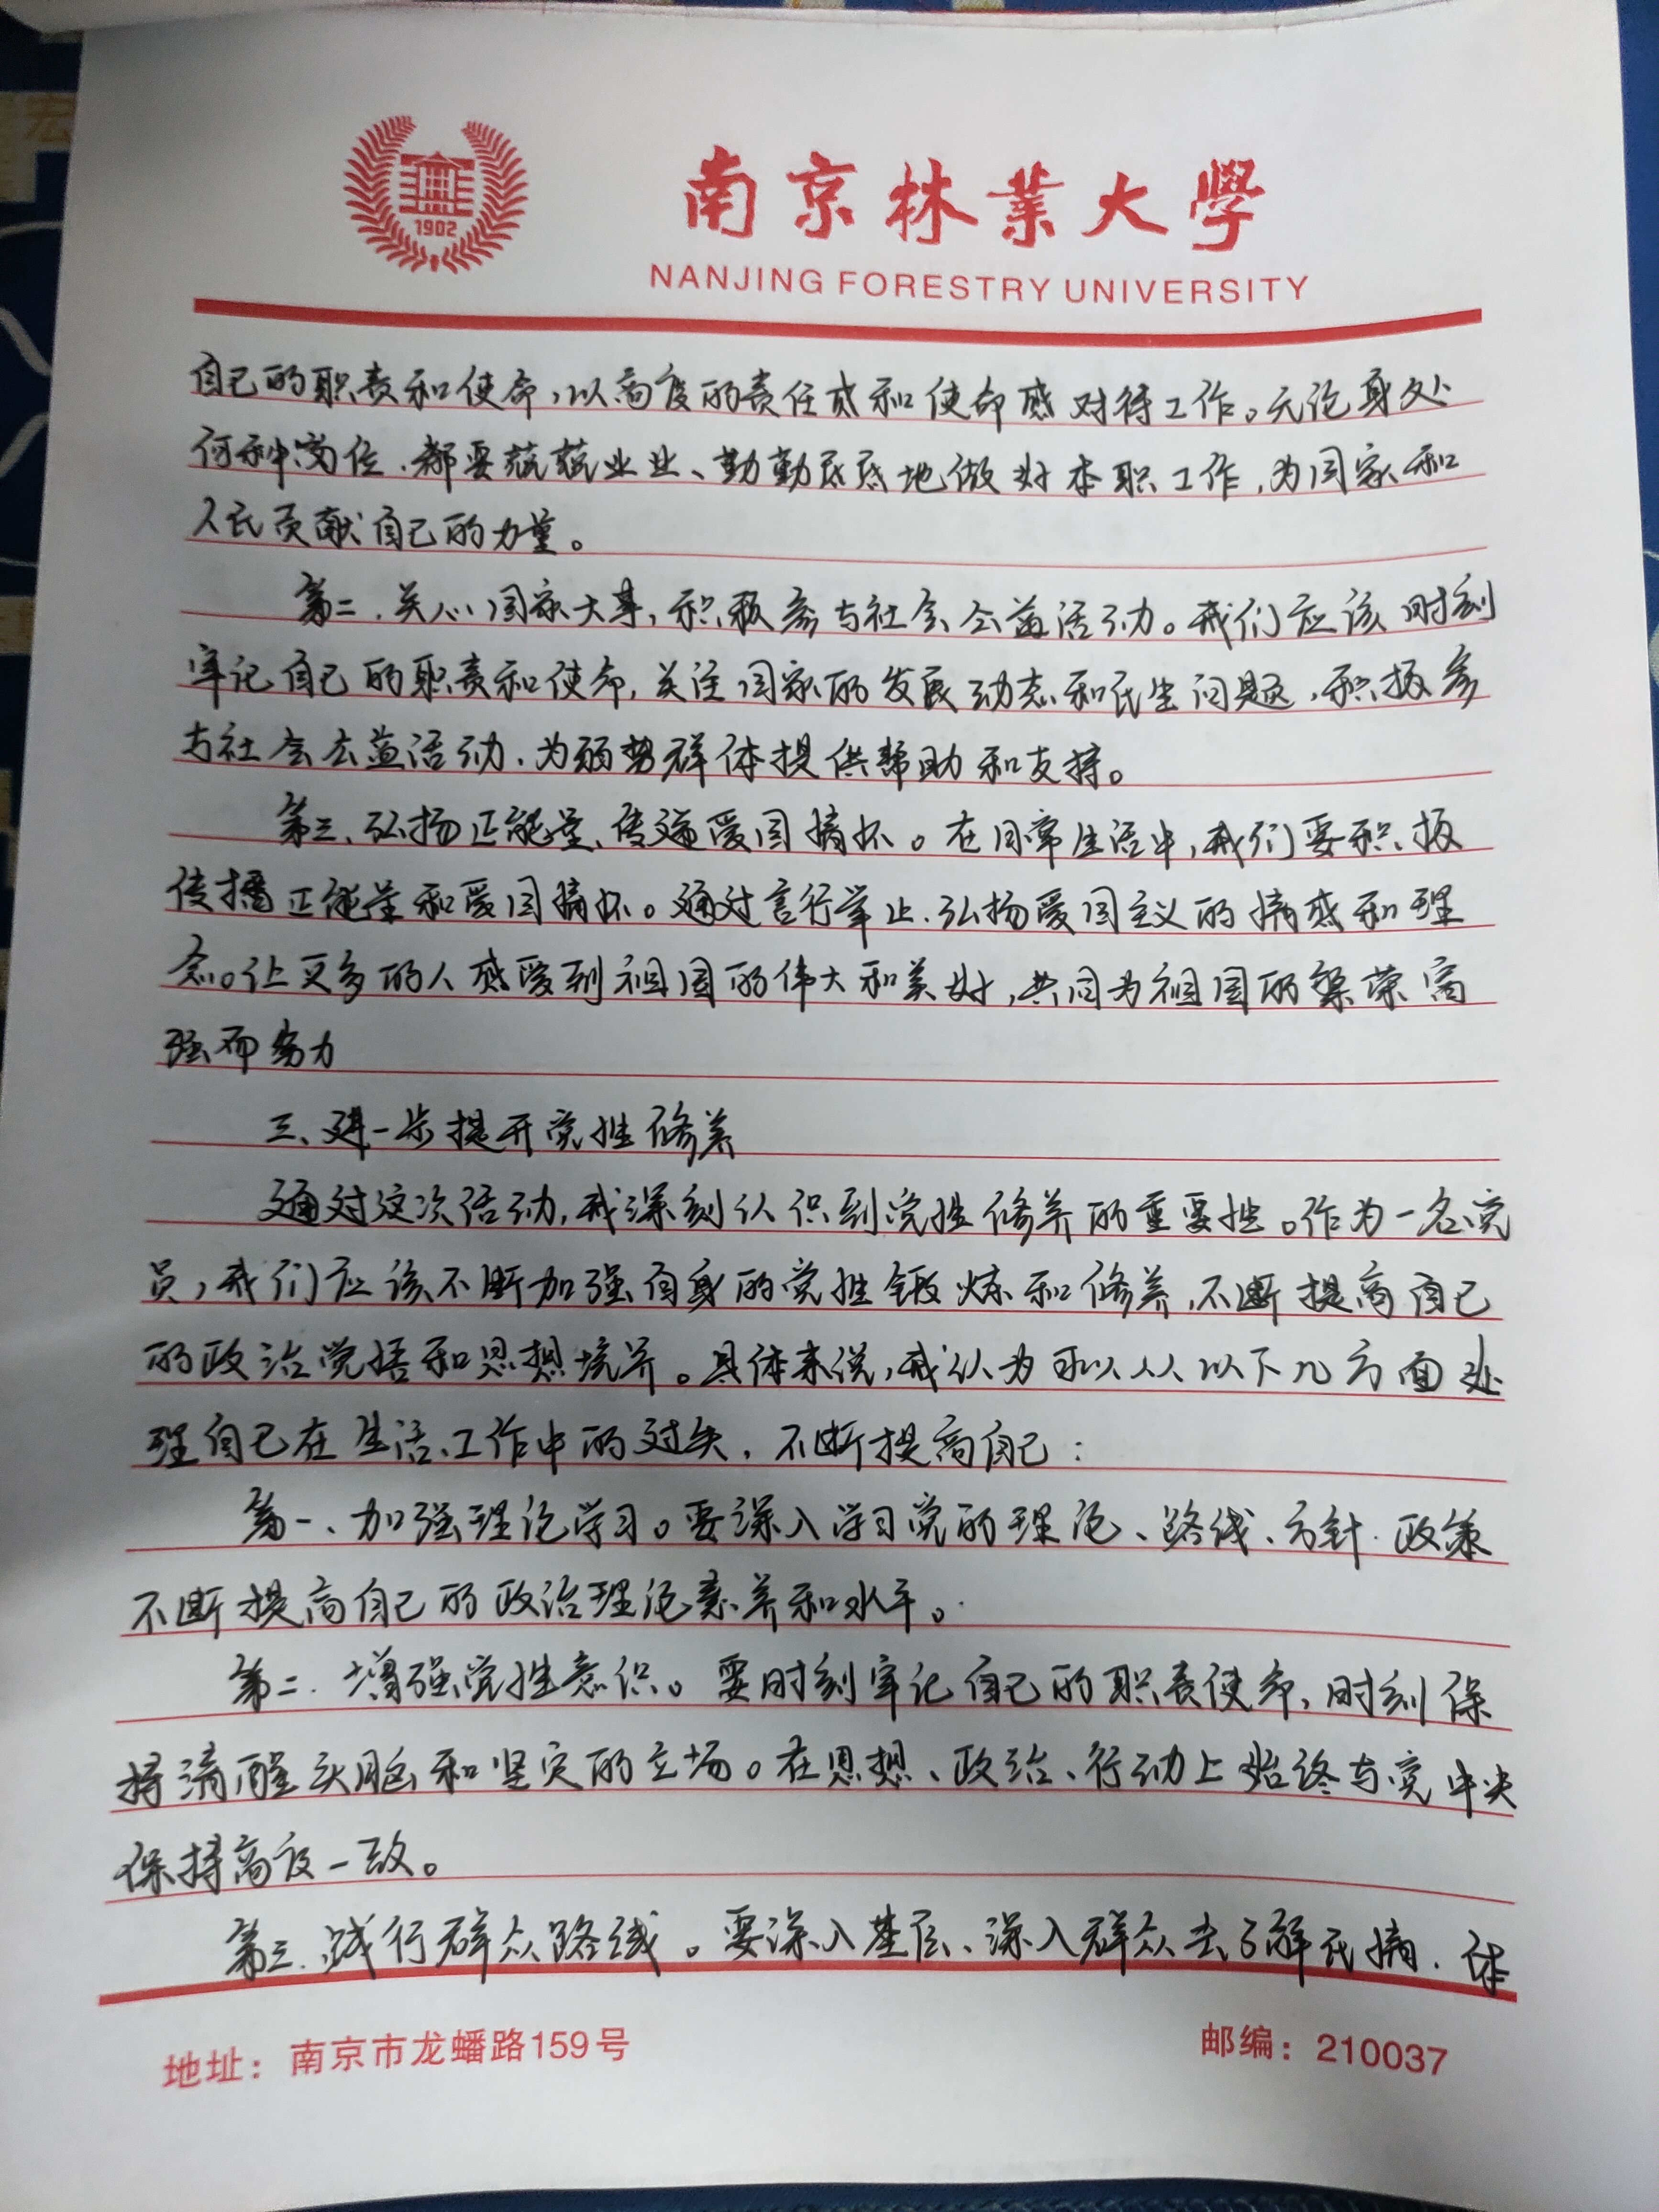 1902
南京林業大學
NANJING FORESTRY UNIVERSITY
自己的职责和使命,以高度的责任感和使命感对待工作。无论身处
何种岗位,都要兢兢业业、勤勤恳恳地做好本职工作,为国家和
人民贡献自己的力量。
第二、关心国家大事,积极参与社会公益活动。我们应该时刻
牢记自己的职责和使命,关注国家的发展动态和民生问题,积极参
与社会公益活动,为弱势群体提供帮助和支持。
第三、弘扬正能量、传递爱国情怀。在日常生活中,我们要积极
传播正能量和爱国情怀。通过言行举止,弘扬爱国主义的情感和理
念。让更多的人感受到祖国的伟大和美好,共同为祖国的繁荣富
强而努力
三、进一步提升党性修养
通过这次活动,我深刻认识到党性修养的重要性。作为一名党
员,我们应该不断加强自身的党性锻炼和修养,不断提高自己
的政治觉悟和思想境界。具体来说,我认为可以从以下几方面处
理自己在生活、工作中的过失,不断提高自己:
第一、加强理论学习。要深入学习党的理论、路线、方针、政策
不断提高自己的政治理论素养和水平。
第二、增强党性意识。要时刻牢记自己的职责使命,时刻保
持清醒头脑和坚定的立场。在思想、政治、行动上始终与党中央
保持高度一致。
第三、践行群众路线。要深入基层、深入群众去了解民情、
地址:南京市龙蟠路159号 邮编:210037